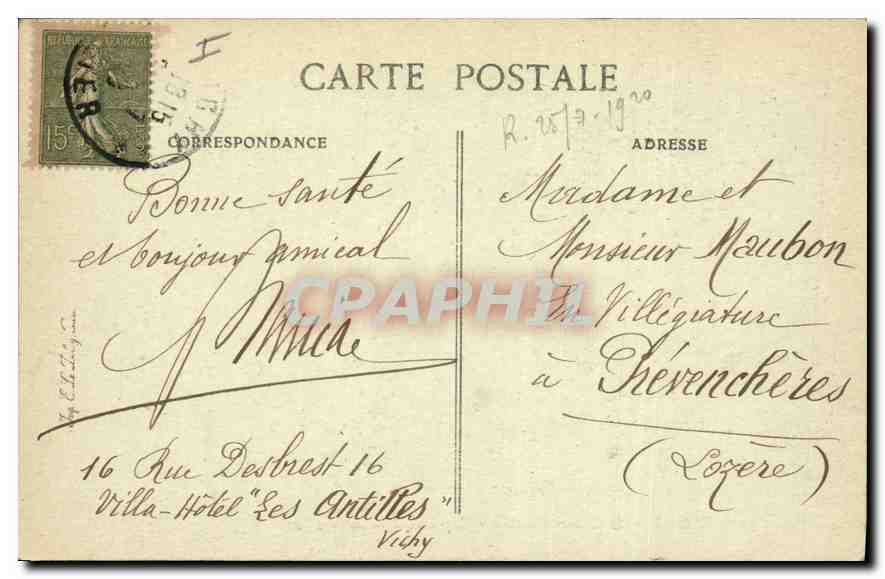 CARTE POSTALE
REPUBLIQUE FRANÇAISE
15c
R. 25/7-1920
CORRESPONDANCE
Bonne santé
et bonjour amical
16 Rue Desbrest 16
Villa-Hôtel "Les Antilles"
Vichy
ADRESSE
Madame et
Monsieur Maubon
En Villégiature
à Prévenchères
(Lozère)
CPAPHIL